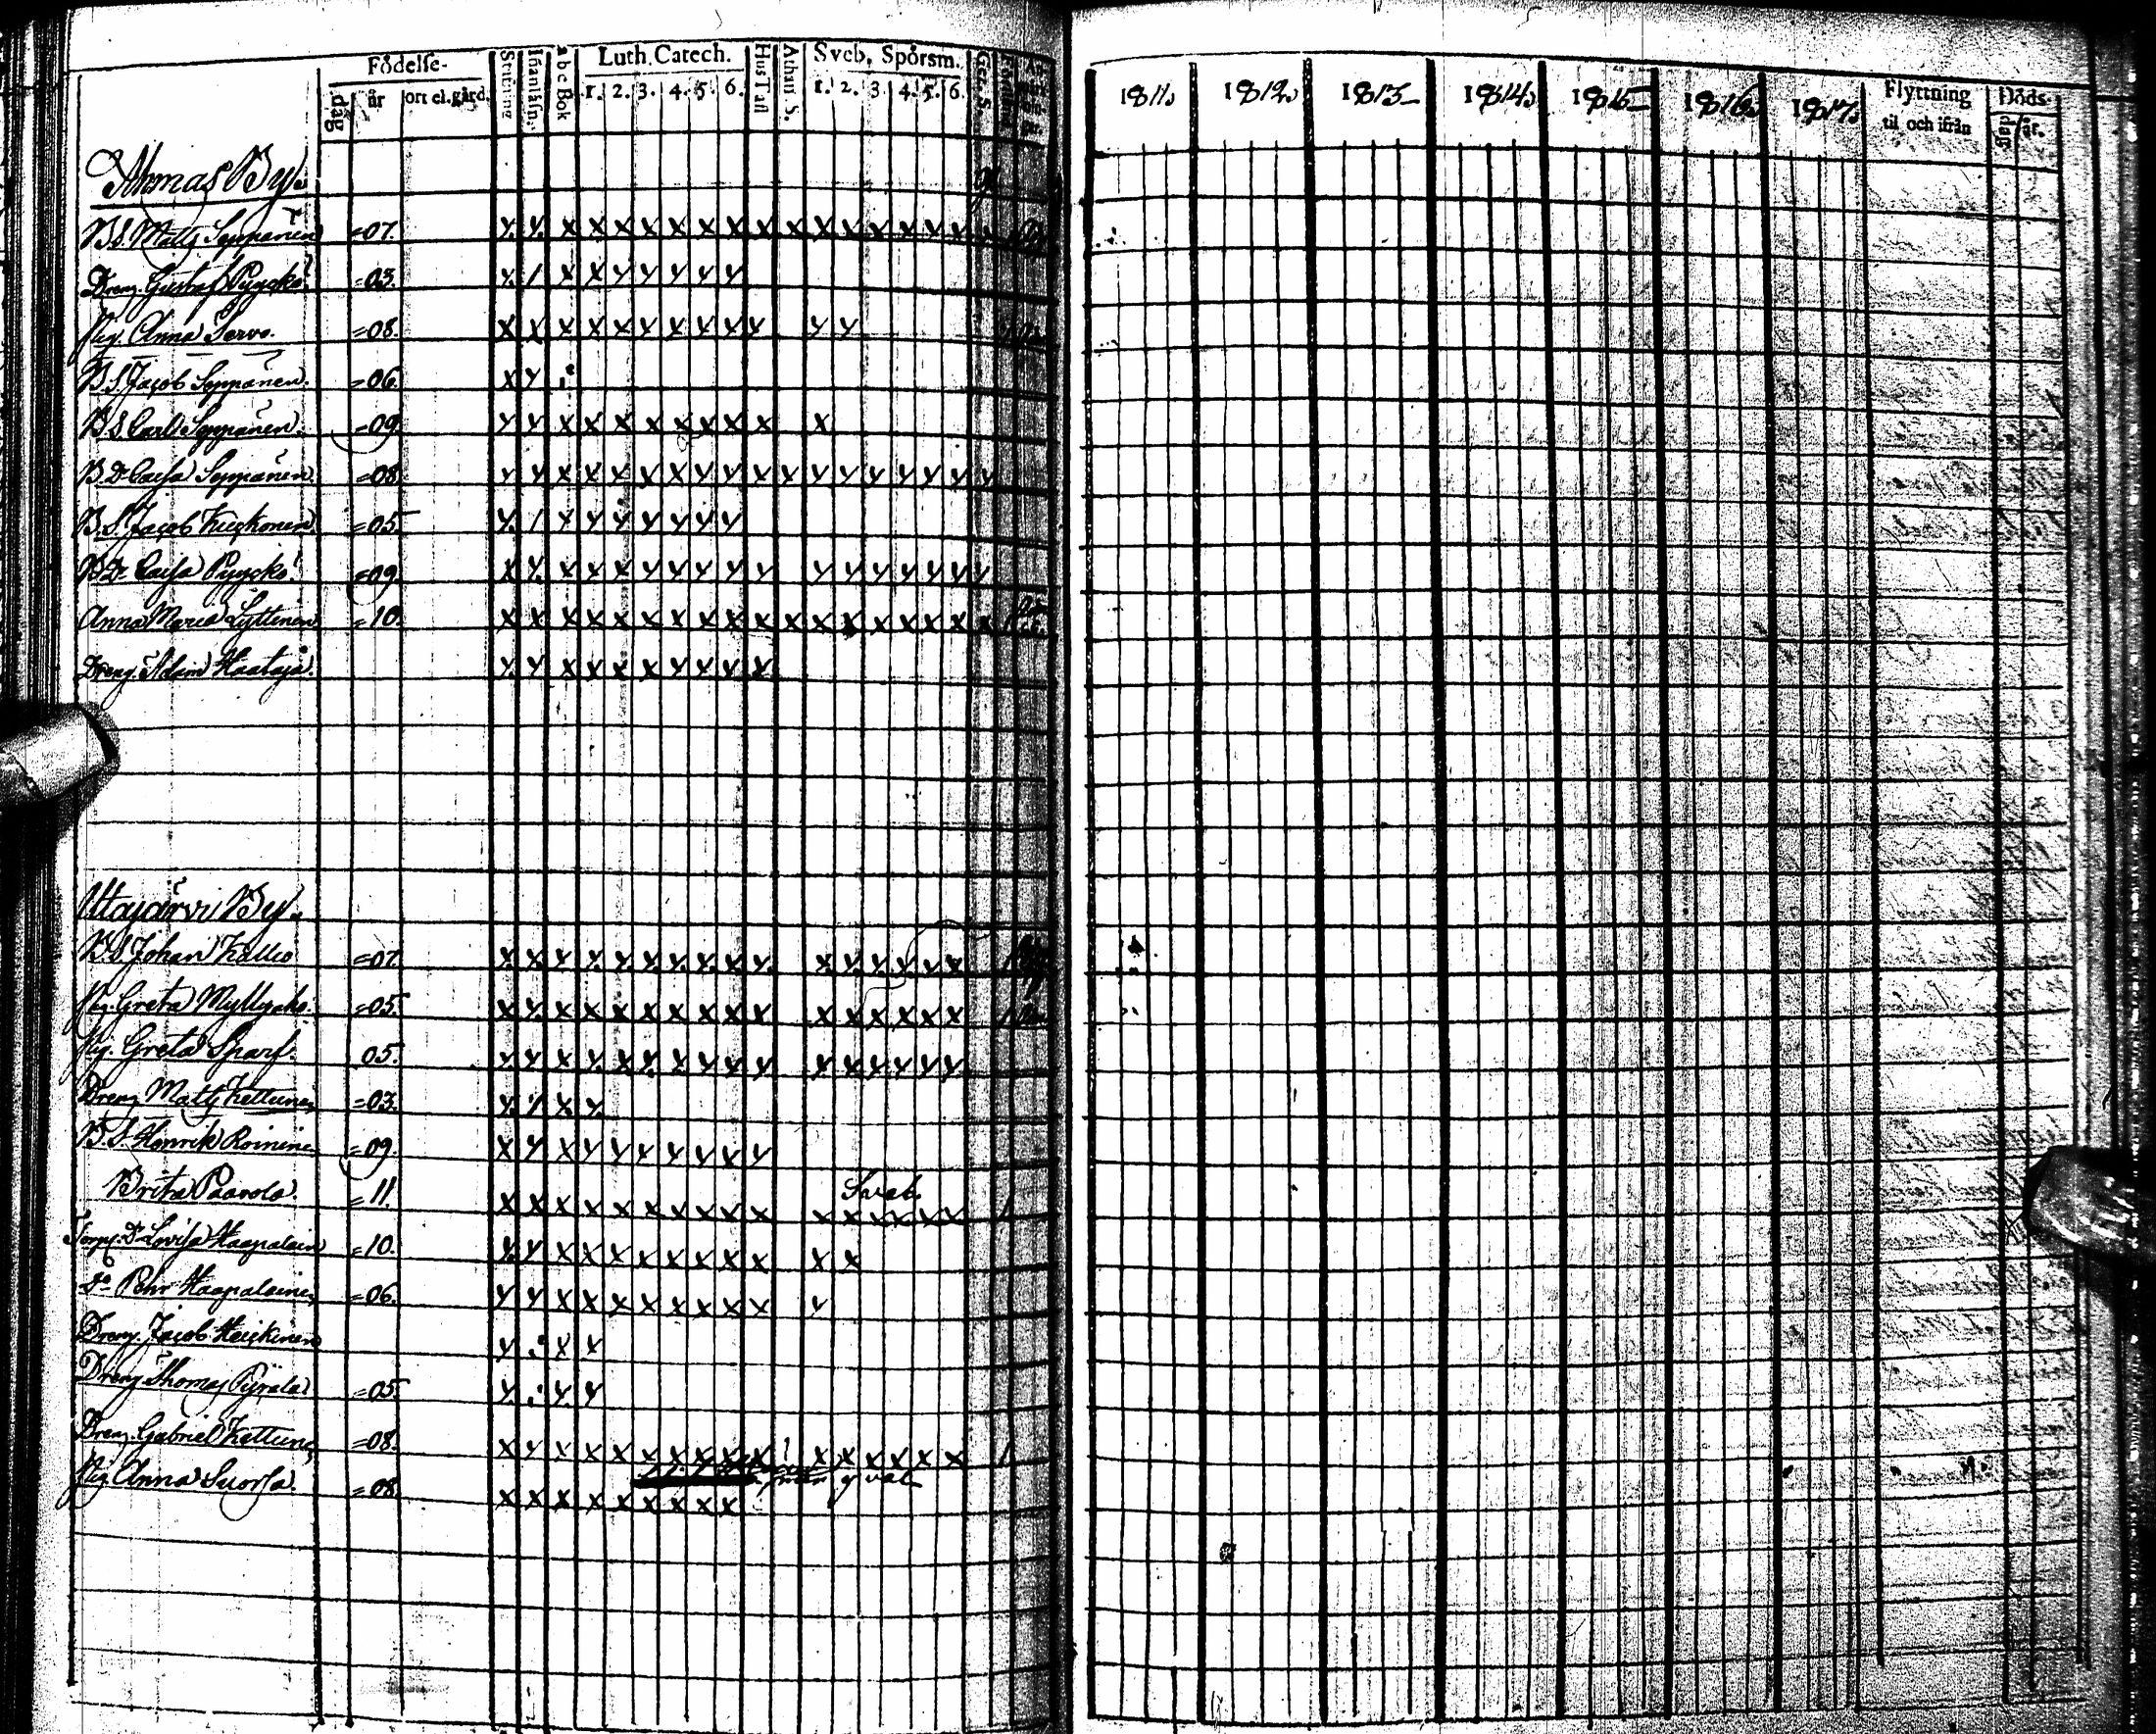 Födelse-
dag
år
ort el. gård.
Innanläsn.
a b c Bok
Luth. Catech.
1. 2. 3. 4. 5. 6.
Hus Tafl
Athan. S.
Sveb. Spörsm.
1. 2. 3. 4. 5. 6.
1811. 1812. 1813 1814. 1815 1816. 1817.
Flyttning
til och ifrån
Döds-
dag
år.
Ahmas By.
B. S. Matts Seppänen =07.
Dreng. Gustaf Pyyckö =03.
Pig. Anna Servo. =08.
B. S. Jacob Seppänen. =06.
B. S. Carl Seppänen. =09.
B. Dr. Caisa Seppänen. =08
B. S. Jacob =05.
B. Dr. Caisa Pyyckö. =09.
Anna Maria Lyttinen =10.
Dreng. Adam Haataja.
Utajärvi By.
B. S. Johan Kallio =07.
Pig. Greta Myllyaho. =05.
Pig. Greta Sparf. 05.
Dreng Matts Kettunen =03.
B. S. Henrik Roininen =09.
Brita Paavola. =11.
Sveb.
Torp. Dr. Lovisa Haapalain =10.
Do Pehr Haapalainen =06.
Dreng. Jacob Heickinen
Dreng Thomas Pyrälä =05.
Dreng. Gabriel Kettunen =08.
Pig Anna Suorsa. =08.